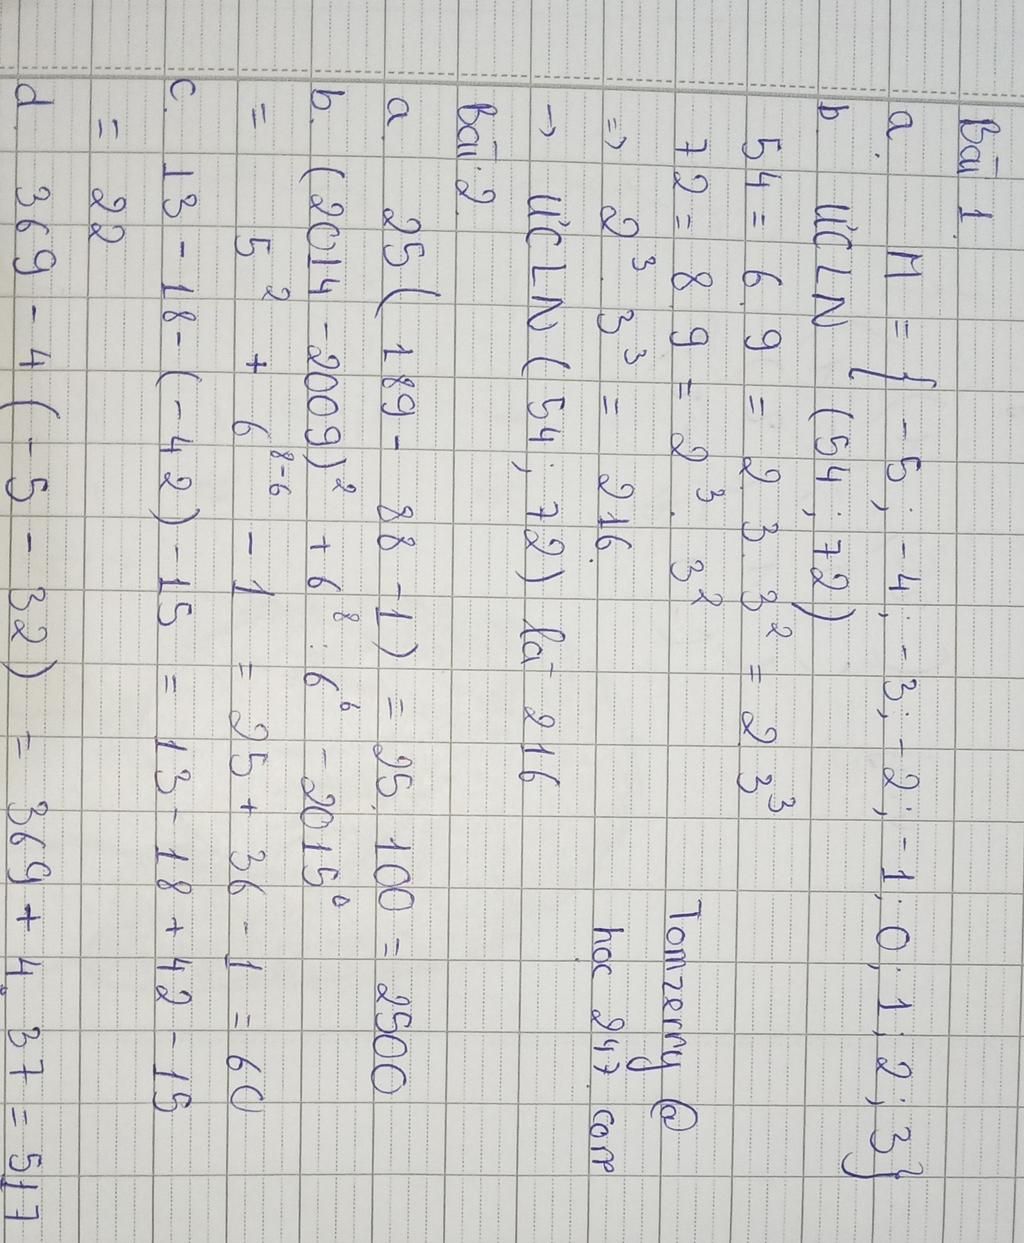 Bài 1.
a. M = { -5; -4; -3; -2; -1; 0; 1; 2; 3}
b. ƯCLN (54; 72)
54 = 6.9 = 2.3.3² = 2.3³
72 = 8.9 = 2³.3²
=> 2³.3³ = 216.
→ ƯCLN (54; 72) là 216
Tomzerry @
hoc 247 com
Bài 2.
a. 25 ( 189 - 88 - 1) = 25.100 = 2500
b. (2014 - 2009)² + 6⁸ : 6⁶ - 2015⁰
= 5² + 6⁸⁻⁶ - 1 = 25 + 36 - 1 = 60
c. 13 - 18 - (-42) - 15 = 13 - 18 + 42 - 15
= 22
d. 369 - 4 (-5 - 32) = 369 + 4.37 = 517